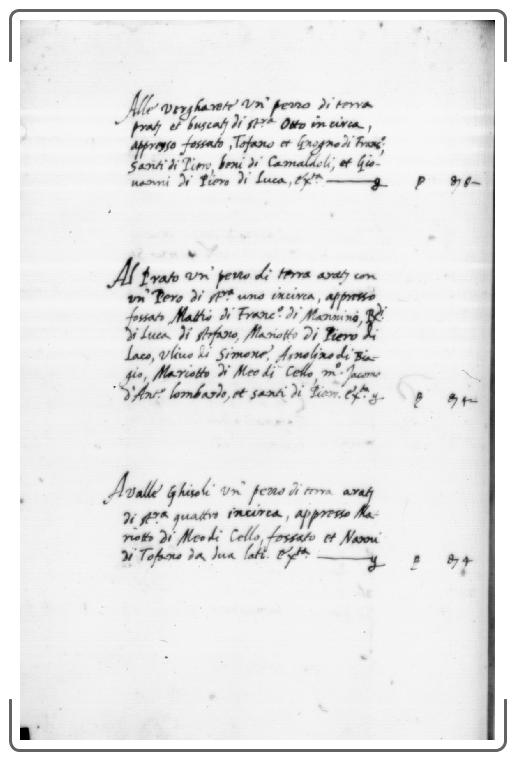 Alle vergharete un pezzo di terra
prati et buscati di stra Otto incirca,
appresso fossato, Tofano et Grogno di Franc.o,
Santi di Piero, beni di Camaldoli, et Gio-
vanni di Piero di Luca, &
Al Prato un pezzo di terra arati con
un Pero di stra uno incirca, appresso
fossato Mattio di Franc.o di Mannino,
di Luca di stefano, Mariotto di Piero di
Laco, Ulivo di Simone, Agnolino di Bia-
gio, Mariotto di Meo di Cello m.o Jacomo
d'Ant.o lombardo, et santi di Piero.
A valle Ghisoli un pezzo di terra arati
di stra quattro incirca, appresso Ma-
riotto di Meo di Cello, fossato et Nanni
di Tofano da dua lati.